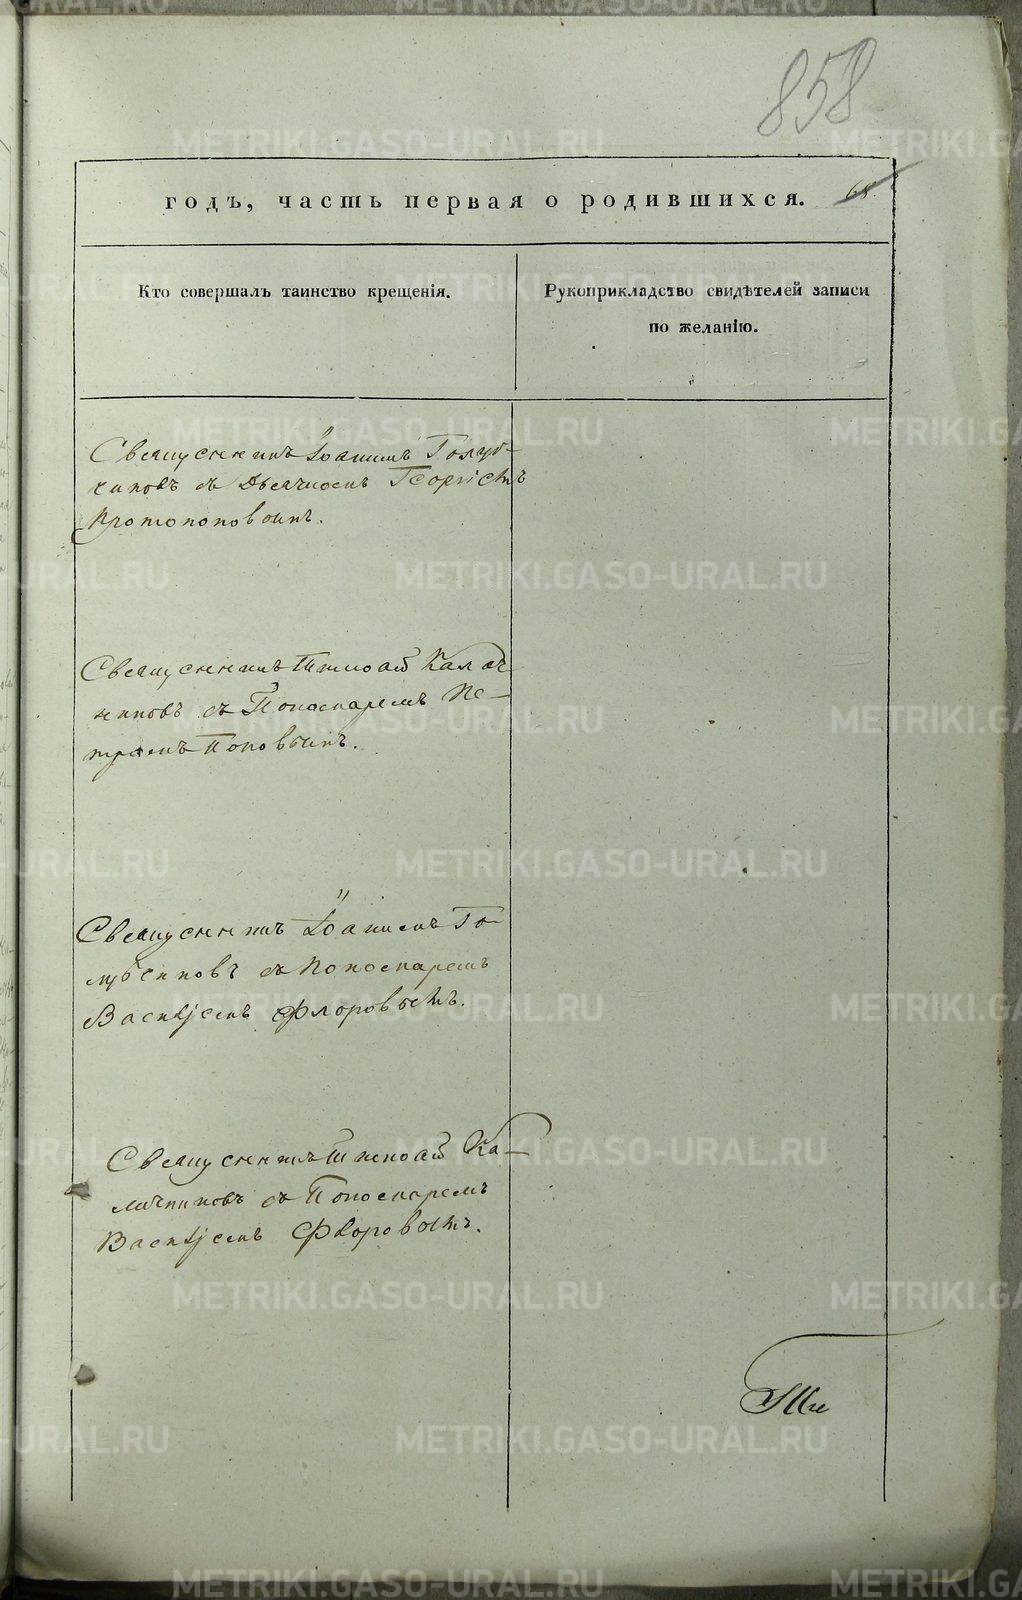 858
годъ, часть первая о родившихся. 68.
Кто совершалъ таинство крещенія.
Рукоприкладство свидѣтелей записи
по желанію.
Священникъ Іоаннъ Голуб-
чиковъ съ Дьячкомъ Георгіемъ
Протопоповымъ.
Священникъ Тимофей Калач-
никовъ съ Пономаремъ Пе-
тромъ Поповымъ.
Священникъ Іоаннъ Го-
лубчиковъ съ Пономаремъ
Васильемъ Флоровымъ.
Священникъ Тимофей Ка-
лачниковъ съ Пономаремъ
Васильемъ Флоровымъ.
METRIKI.GASO-URAL.RU